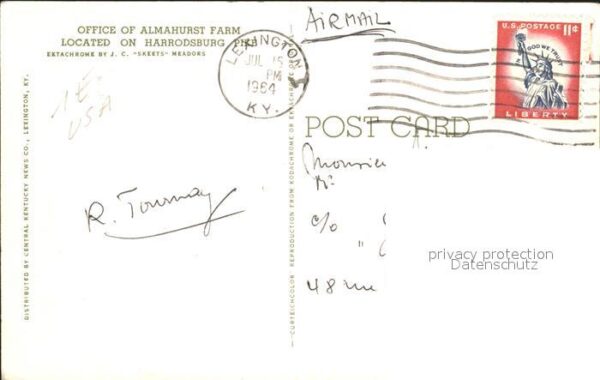 OFFICE OF ALMAHURST FARM
LOCATED ON HARRODSBURG PIKE
EKTACHROME BY J. C. "SKEETS" MEADORS
AIRMAIL
LEXINGTON
JUL 15
PM
1964
KY.
U.S. POSTAGE 11¢
IN GOD WE TRUST
LIBERTY
USA
POST CARD
R. Tournay
c/o
"
48 rue
privacy protection
Datenschutz
DISTRIBUTED BY CENTRAL KENTUCKY NEWS CO., LEXINGTON, KY.
CURTEICHCOLOR REPRODUCTION FROM KODACHROME OR EKTACHROME